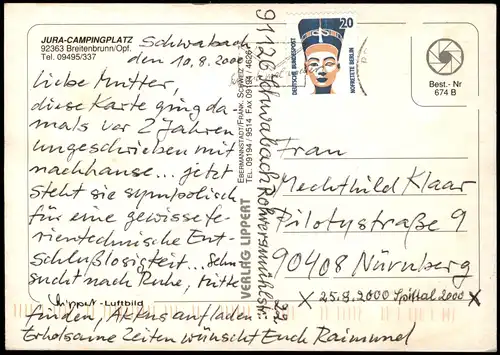 JURA-CAMPINGPLATZ
92363 Breitenbrunn/Opf.
Tel. 09495/337
Schwabach
den 10.8.2000
Liebe Mutter,
diese Karte ging da-
mals vor 2 Jahren
ungeschrieben mit
nachhause... jetzt
steht sie symbolisch
für eine gewisse fe-
rientechnische Ent-
schlußlosigkeit... Sehn
sucht nach Ruhe, Tritte
Lippert-Luftbild
finden, Akkus aufladen
Erholsame Zeiten wünscht Euch Raimund
91126 Schwabach Rohrersmühlstr.
22
EBERMANNSTADT/FRÄNK. SCHWEIZ
TEL. 09194 / 9514 FAX 09194 / 4626
VERLAG LIPPERT
20
DEUTSCHE BUNDESPOST
NOFRETETE BERLIN
Best.- Nr
674 B
Frau
Mechthild Klaar
Pilotystraße 9
90408 Nürnberg
x 25.9.2000 Spittal 2000 x